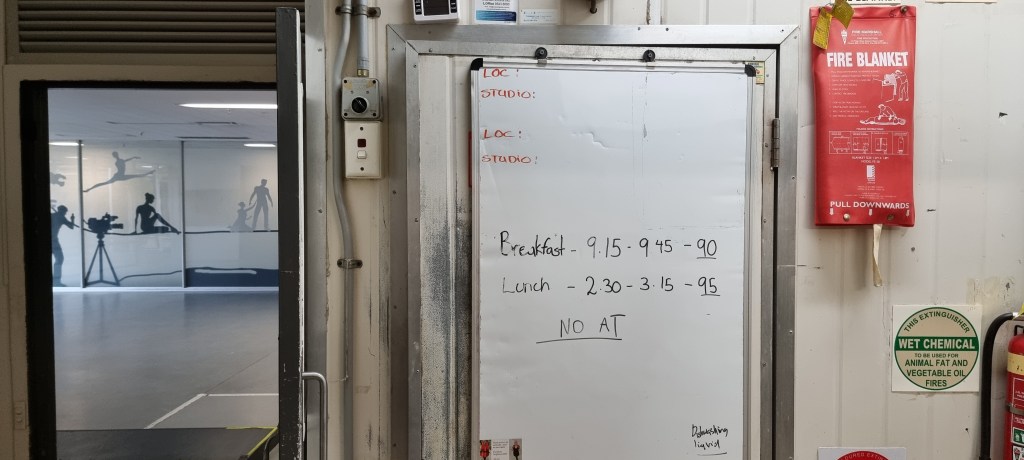 LOC:
STUDIO:
LOC:
STUDIO:
Breakfast - 9.15 - 9 45 - 90
Lunch - 2.30 - 3.15 - 95
NO AT
liquid
FIRE BLANKET
PULL DOWNWARDS
THIS EXTINGUISHER
WET CHEMICAL
TO BE USED FOR
ANIMAL FAT AND
VEGETABLE OIL
FIRES